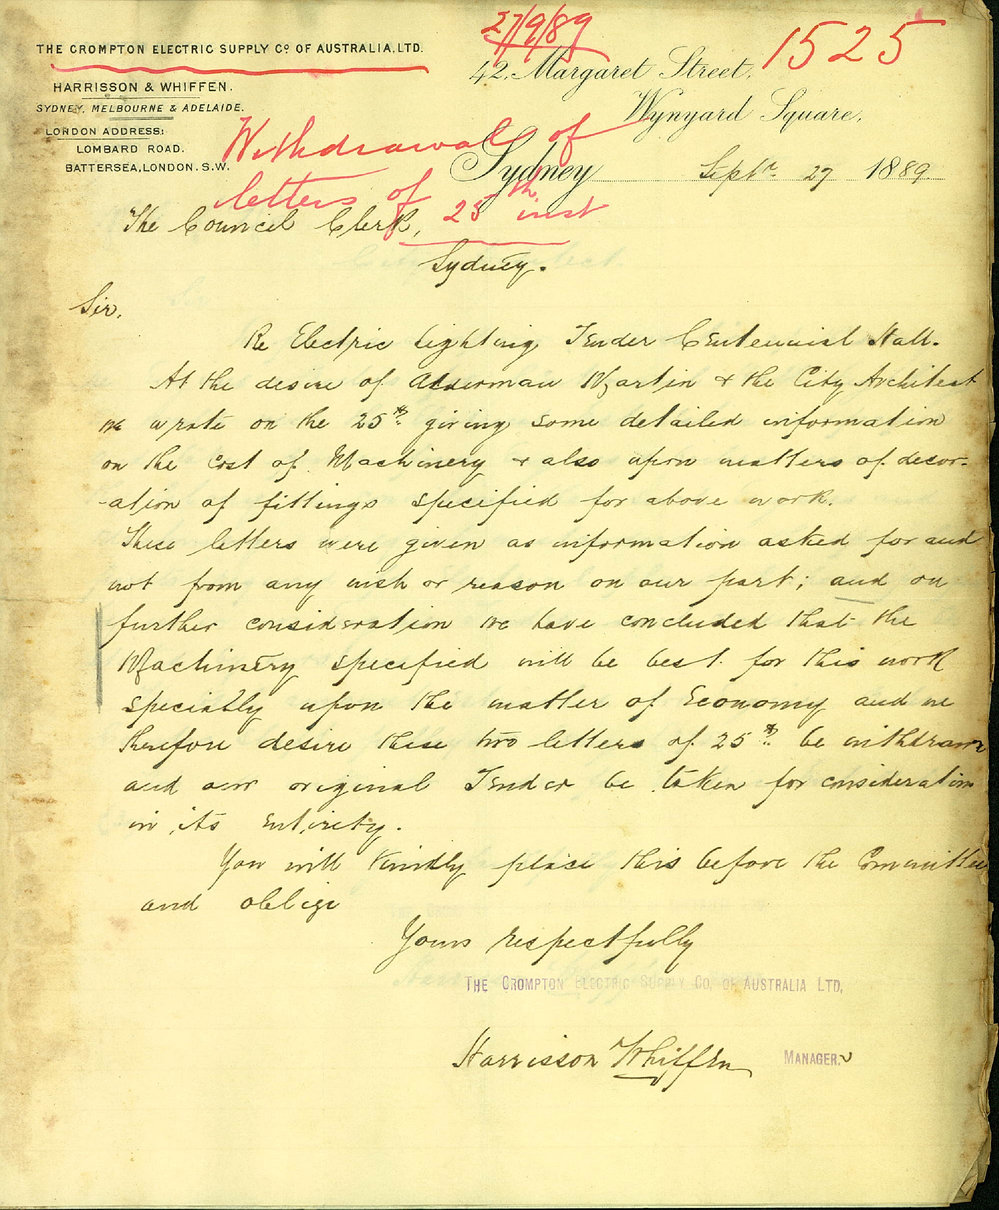 27/9/89
1525
THE CROMPTON ELECTRIC SUPPLY Co OF AUSTRALIA, LTD.
HARRISSON & WHIFFEN.
SYDNEY, MELBOURNE & ADELAIDE.
LONDON ADDRESS:
LOMBARD ROAD.
BATTERSEA, LONDON. S.W.
42, Margaret Street,
Wynyard Square,
Sydney Septr 27 1889
Withdrawal of
letters of 25th inst
The Council Clerk,
Sydney.
Sir,
Re Electric Lighting Tender Centennial Hall.
At the desire of Alderman Martin & the City Architect
we wrote on the 25th giving some detailed information
on the cost of Machinery & also upon matters of decor-
-ation of fittings specified for above work.
These letters were given as information asked for and
not from any wish or reason on our part; and on
further consideration we have concluded that the
Machinery specified will be best for this work
specially upon the matter of Economy and we
therefore desire these two letters of 25th be withdrawn
and our original Tender be taken for consideration
in its entirety.
You will kindly place this before the Committee
and oblige
Yours respectfully
THE CROMPTON ELECTRIC SUPPLY CO. OF AUSTRALIA LTD,
Harrisson Whiffen
MANAGER.